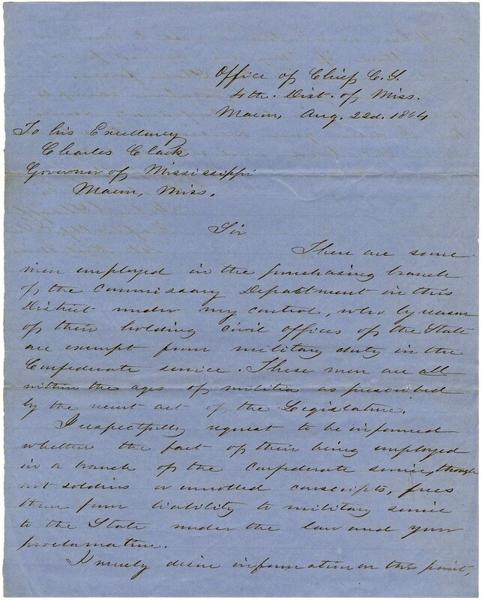 Office of Chief C.S.
4th. Dist. of Miss.
Macon, Aug. 22d. 1864
To his Excellency
Charles Clark
Governor of Mississippi
Macon, Miss.
Sir
There are some
men employed in the purchasing branch
of the Commissary Department in this
District under my control, who by reason
of their holding civil offices of the State
are exempt from military duty in the
Confederate service. These men are all
within the ages of militia as prescribed
by the recent act of the Legislature.
I respectfully request to be informed
whether the fact of their being employed
in a branch of the Confederate service, though
not soldiers or enrolled conscripts, frees
them from liability to military service
to the State under the law and your
proclamation.
I merely desire information on this point,